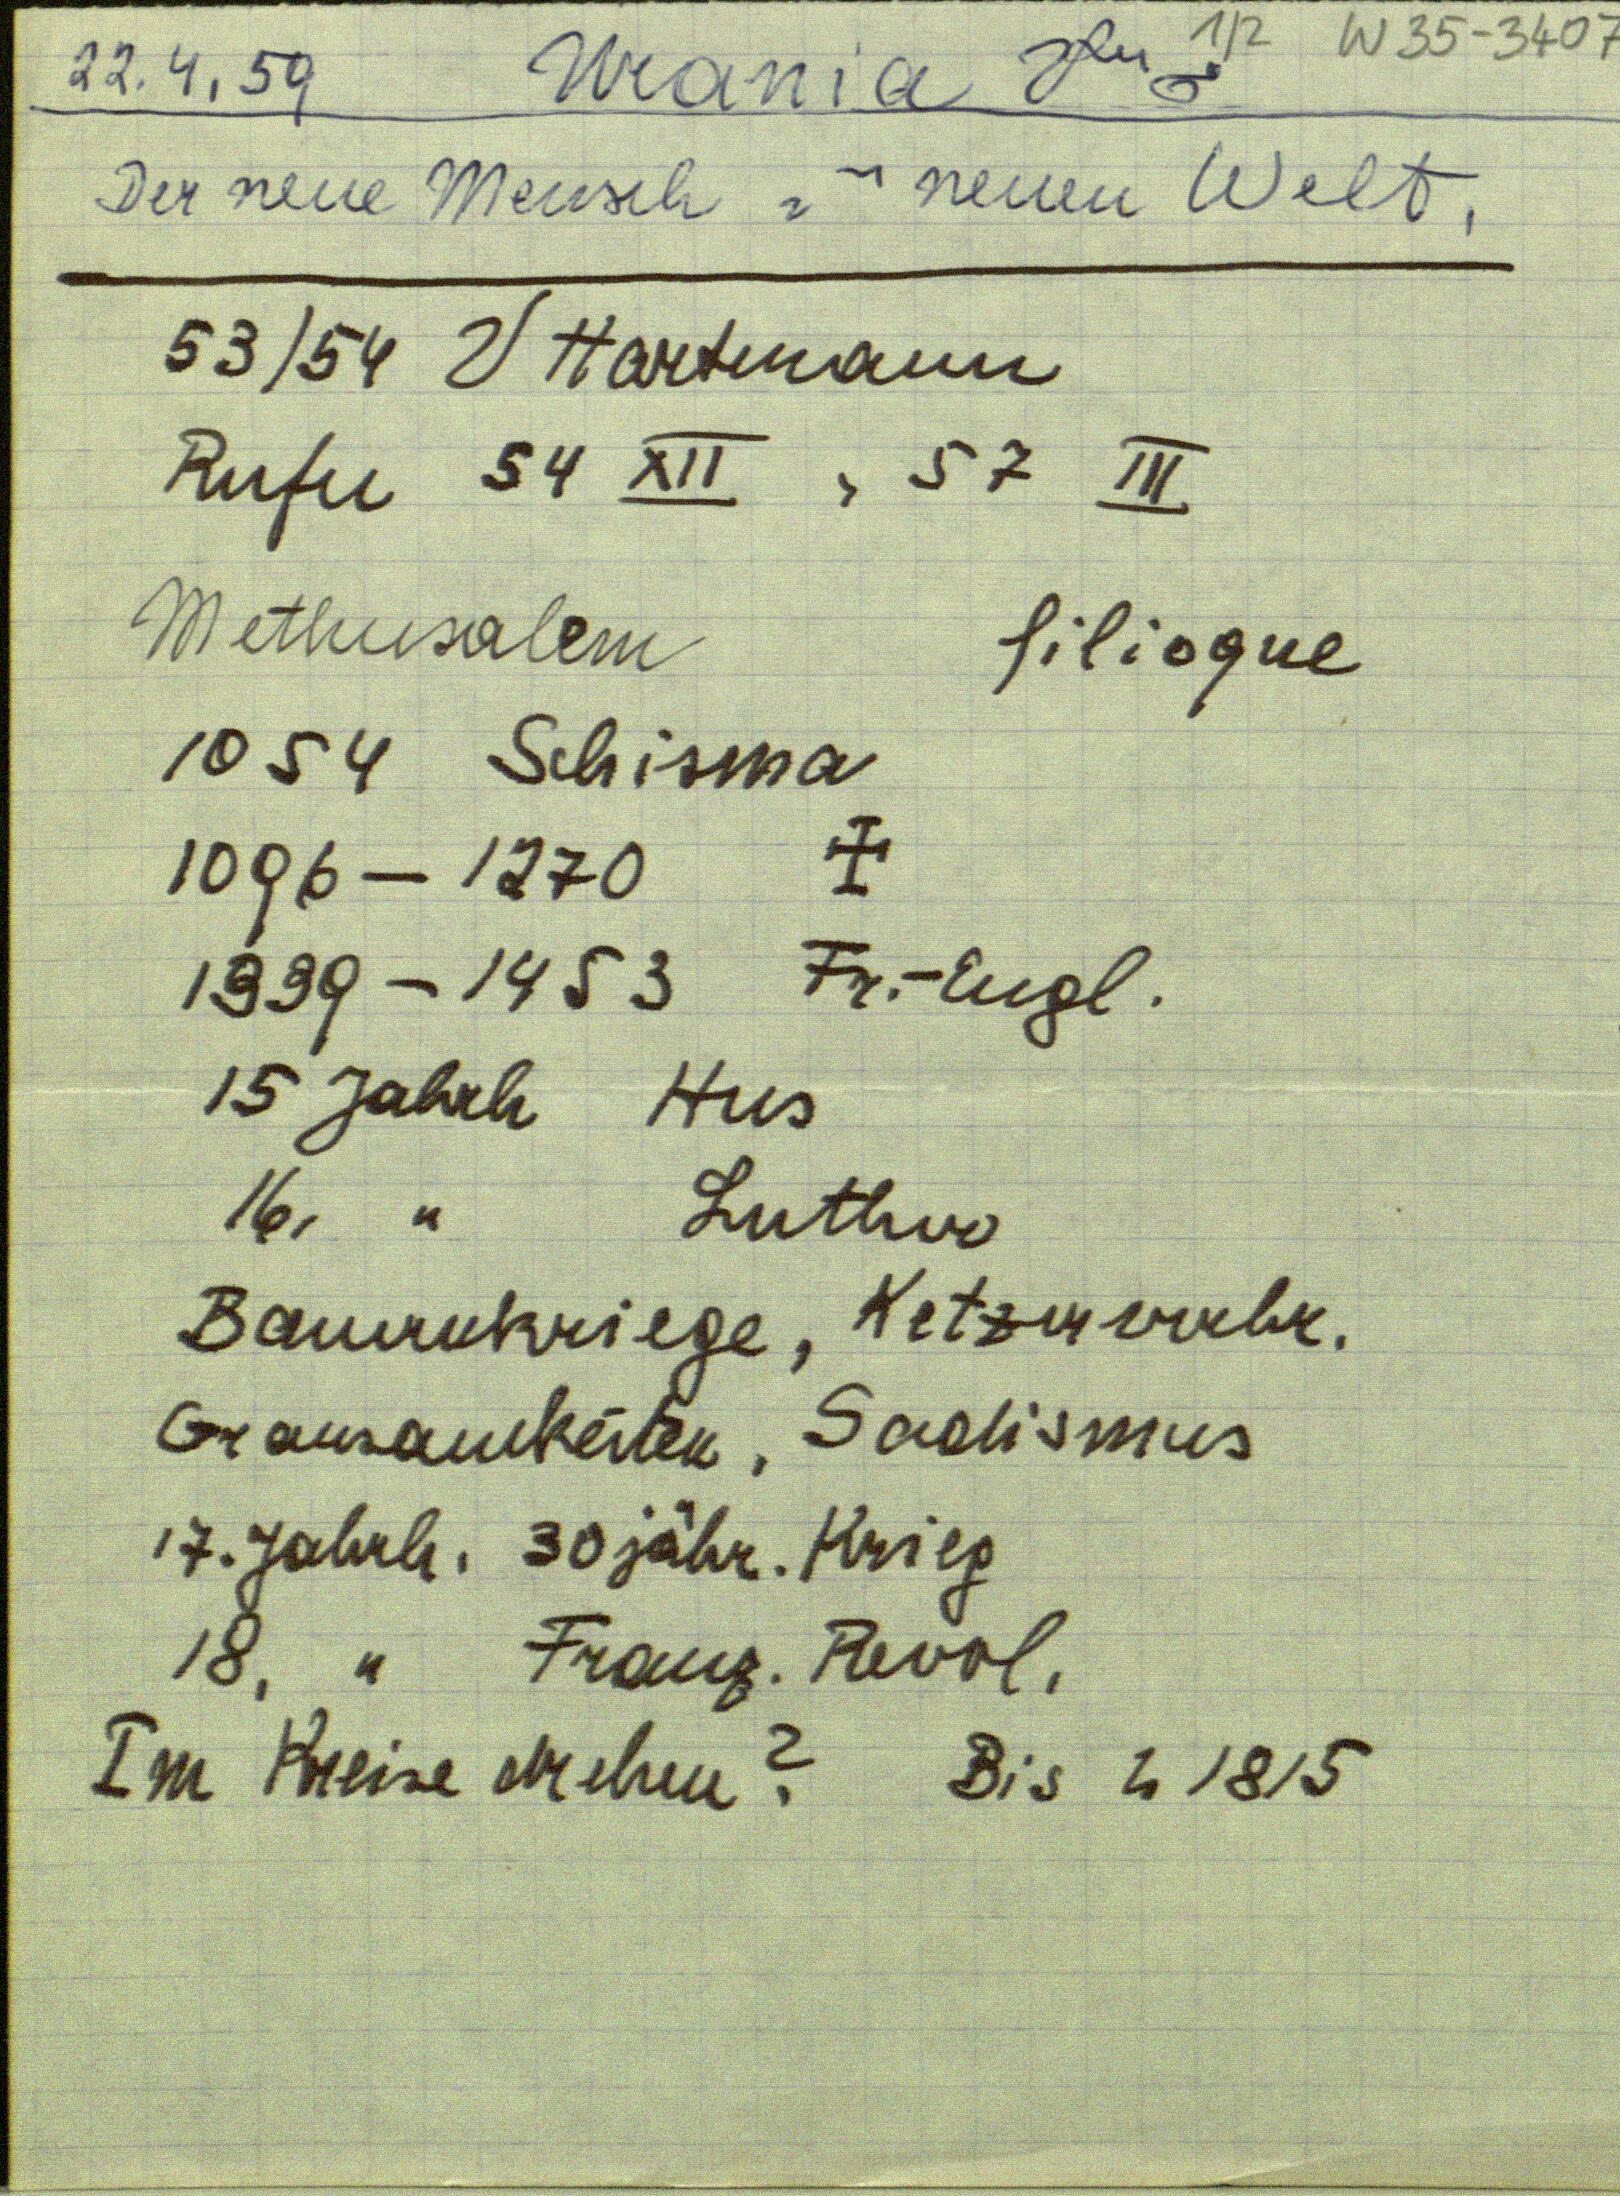 22.4.59 Urania 1/2 W35-3407
Der neue Mensch neuen Welt.
53/54 V Hartmann
Rufu 54 XII, 57 III
Methusalem filioque
1054 Schisma
1096 – 1270 ✠
1339 – 1453 Fr.-Engl.
15 Jahrh Hus
16. " Luther
Bauernkriege, Ketzerverbr.
Grausamkeiten, Sadismus
17. Jahrh. 30jähr. Krieg
18. " Franz. Revol.
Im Kreise drehen? Bis 1815